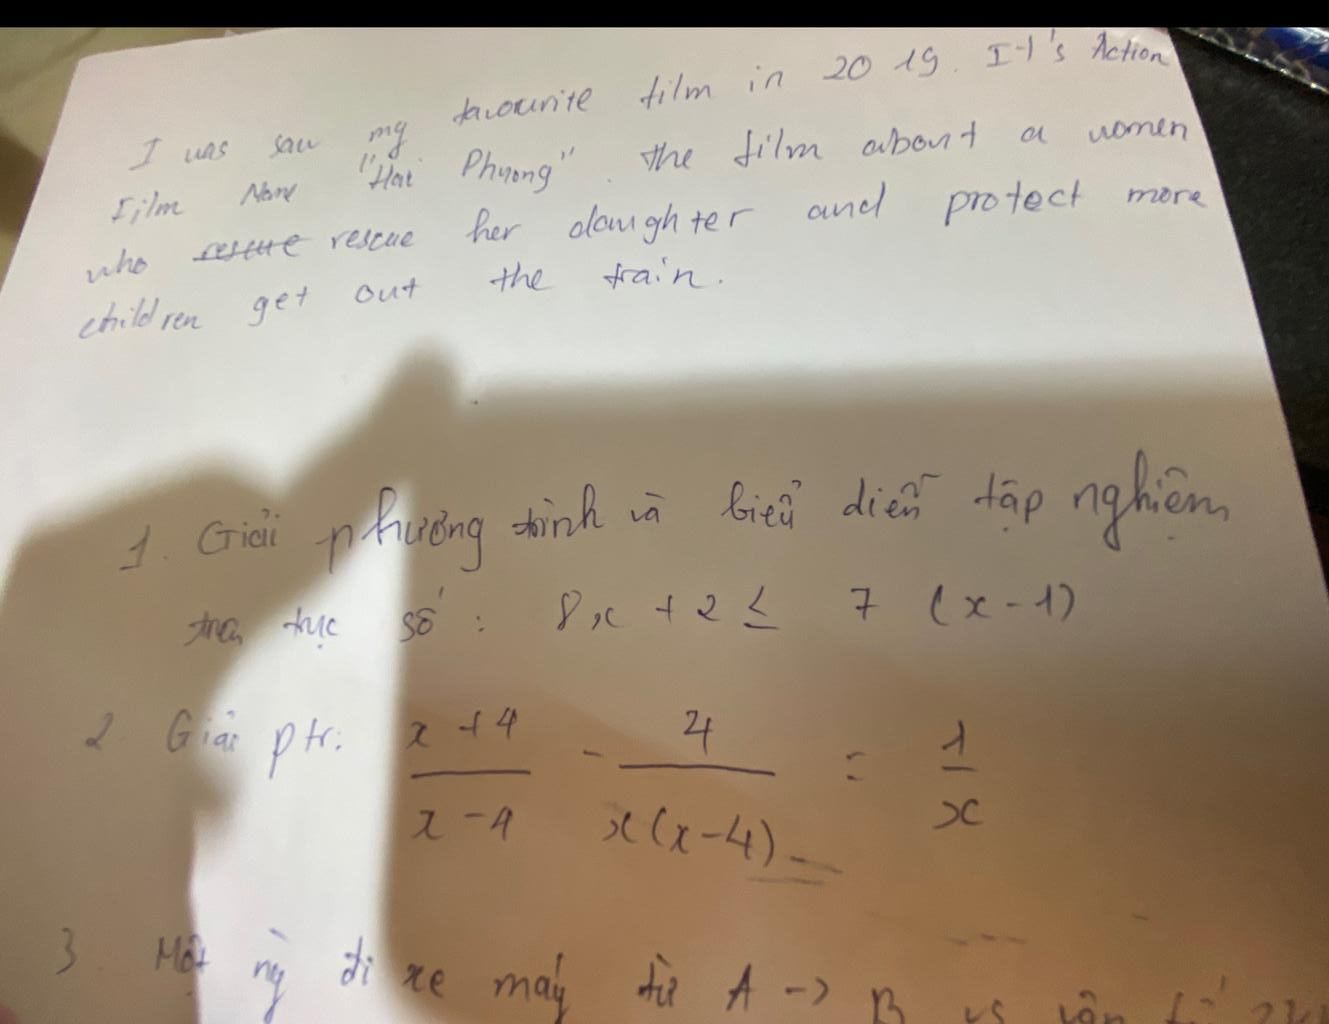 I was saw my favourite film in 2019. It's Action
Film Name "Hai Phuong". the film about a women
who rescue rescue her daughter and protect more
children get out the train.
1. Giải phương trình và biểu diễn tập nghiệm
trên trục số : 8x + 2 ≤ 7 (x - 1)
2 Giải ptr: (x + 4)/(x - 4) - 4/(x(x-4)) = 1/x
3. Một ng đi xe máy từ A -> B vs vận